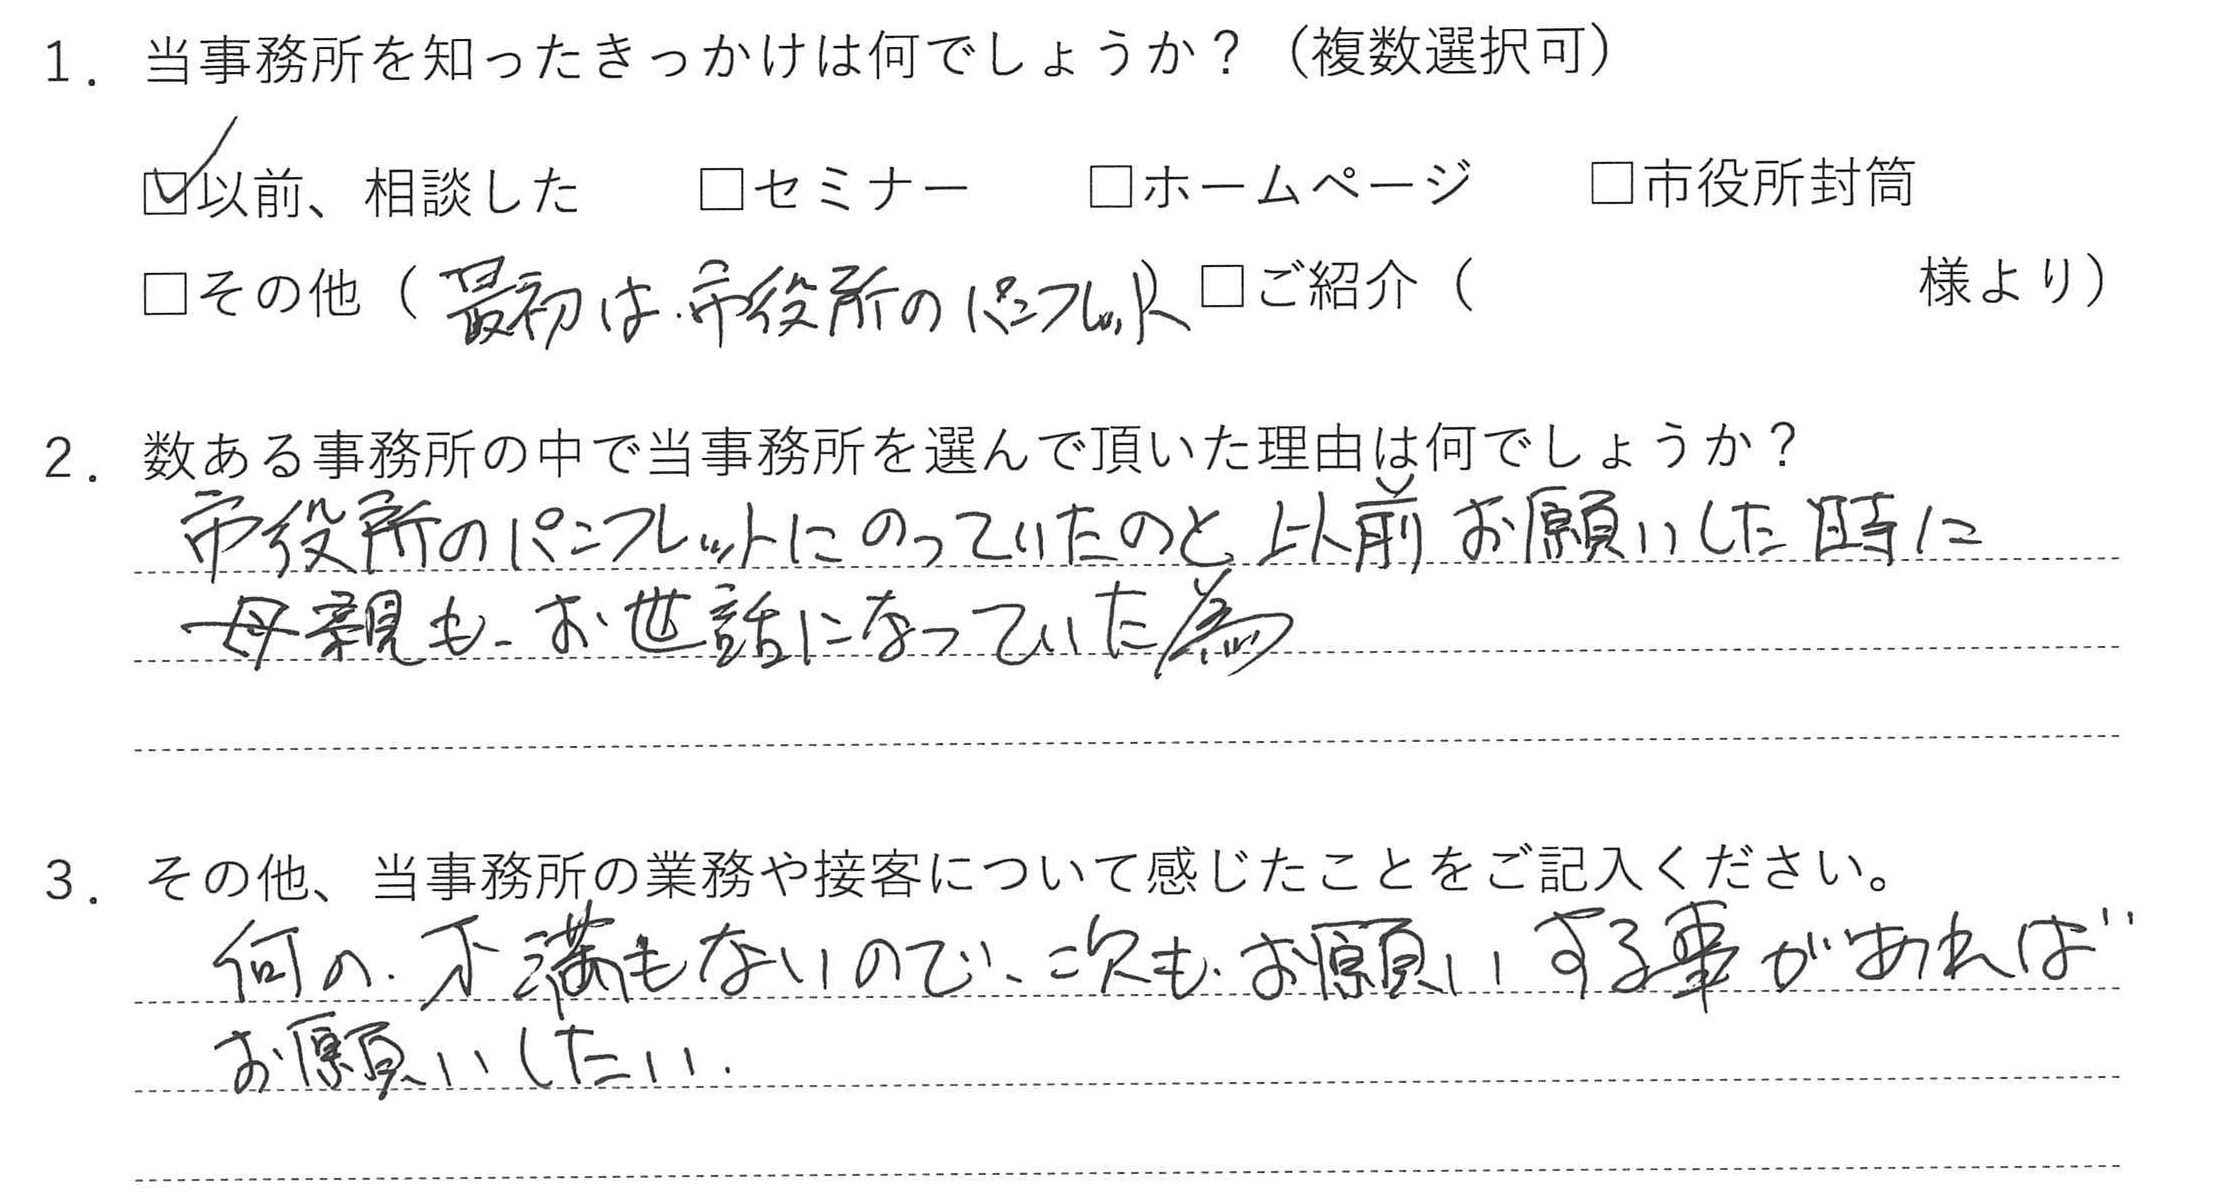 1. 当事務所を知ったきっかけは何でしょうか？（複数選択可）
☑以前、相談した　□セミナー　□ホームページ　□市役所封筒
□その他（最初は、市役所のパンフレット）□ご紹介（　様より）
2. 数ある事務所の中で当事務所を選んで頂いた理由は何でしょうか？
市役所のパンフレットにのっていたのと、以前お願いした時に
母親も、お世話になっていた為
3. その他、当事務所の業務や接客について感じたことをご記入ください。
何の、不満もないので、次も、お願いする事があれば
お願いしたい.